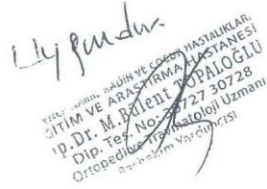 Uygundur.
KADIN VE ÇOCUK HASTALIKLARI
EĞİTİM VE ARAŞTIRMA HASTANESİ
Op. Dr. M. Bülent TOPALOĞLU
Dip. Tes. No: 30727 30728
Ortopedi ve Travmatoloji Uzmanı
Başhekim Yardımcısı